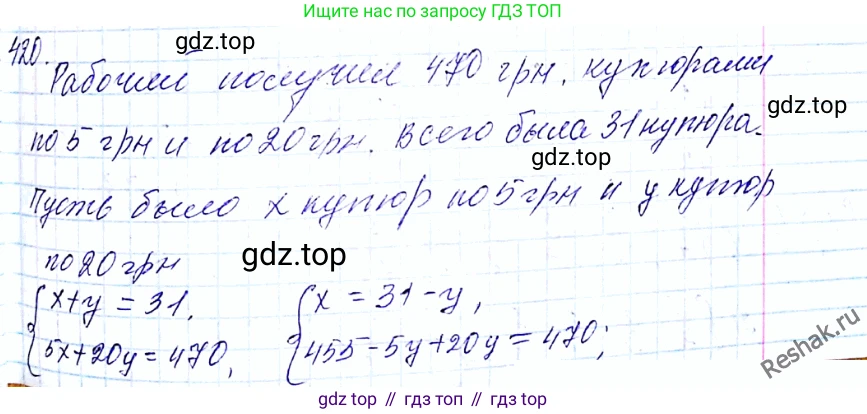 больше по ссылке ГДЗ ТОП
420.
gdz.top
Рабочий получил 470 грн. купюрами
gdz.top
по 5 грн и по 20 грн. Всего была 31 купюра.
gdz.top
Пусть было x купюр по 5 грн и y купюр
по 20 грн
gdz.top
x+y = 31, x = 31-y,
5x+20y = 470, 455-5y+20y = 470;
gdz.top
Reshak.ru
gdz top // гдз топ // gdz top